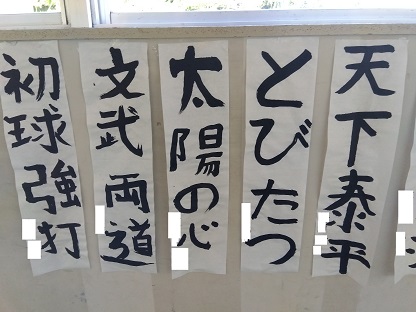 天下泰平
とびたつ
太陽の心
文武両道
初球強打